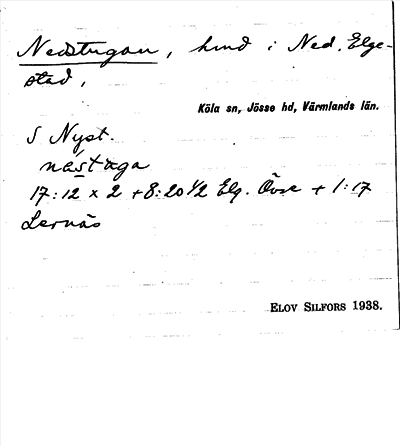 Nedstugan, hmd i Ned. Elge-
stad,
Köla sn, Jösse hd, Värmlands län.
S Nyst.
nástaga
17:12 x 2 + 8:20 1/2 Elg. Övre + 1:17
Lernäs
ELOV SILFORS 1938.